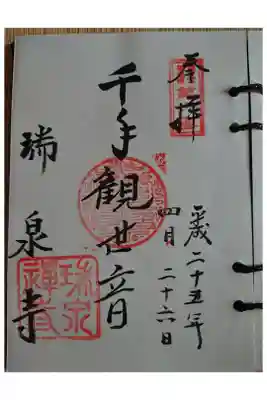 奉拝
平成二十五年
四月二十六日
千手觀世音
瑞泉寺
瑞泉禅寺